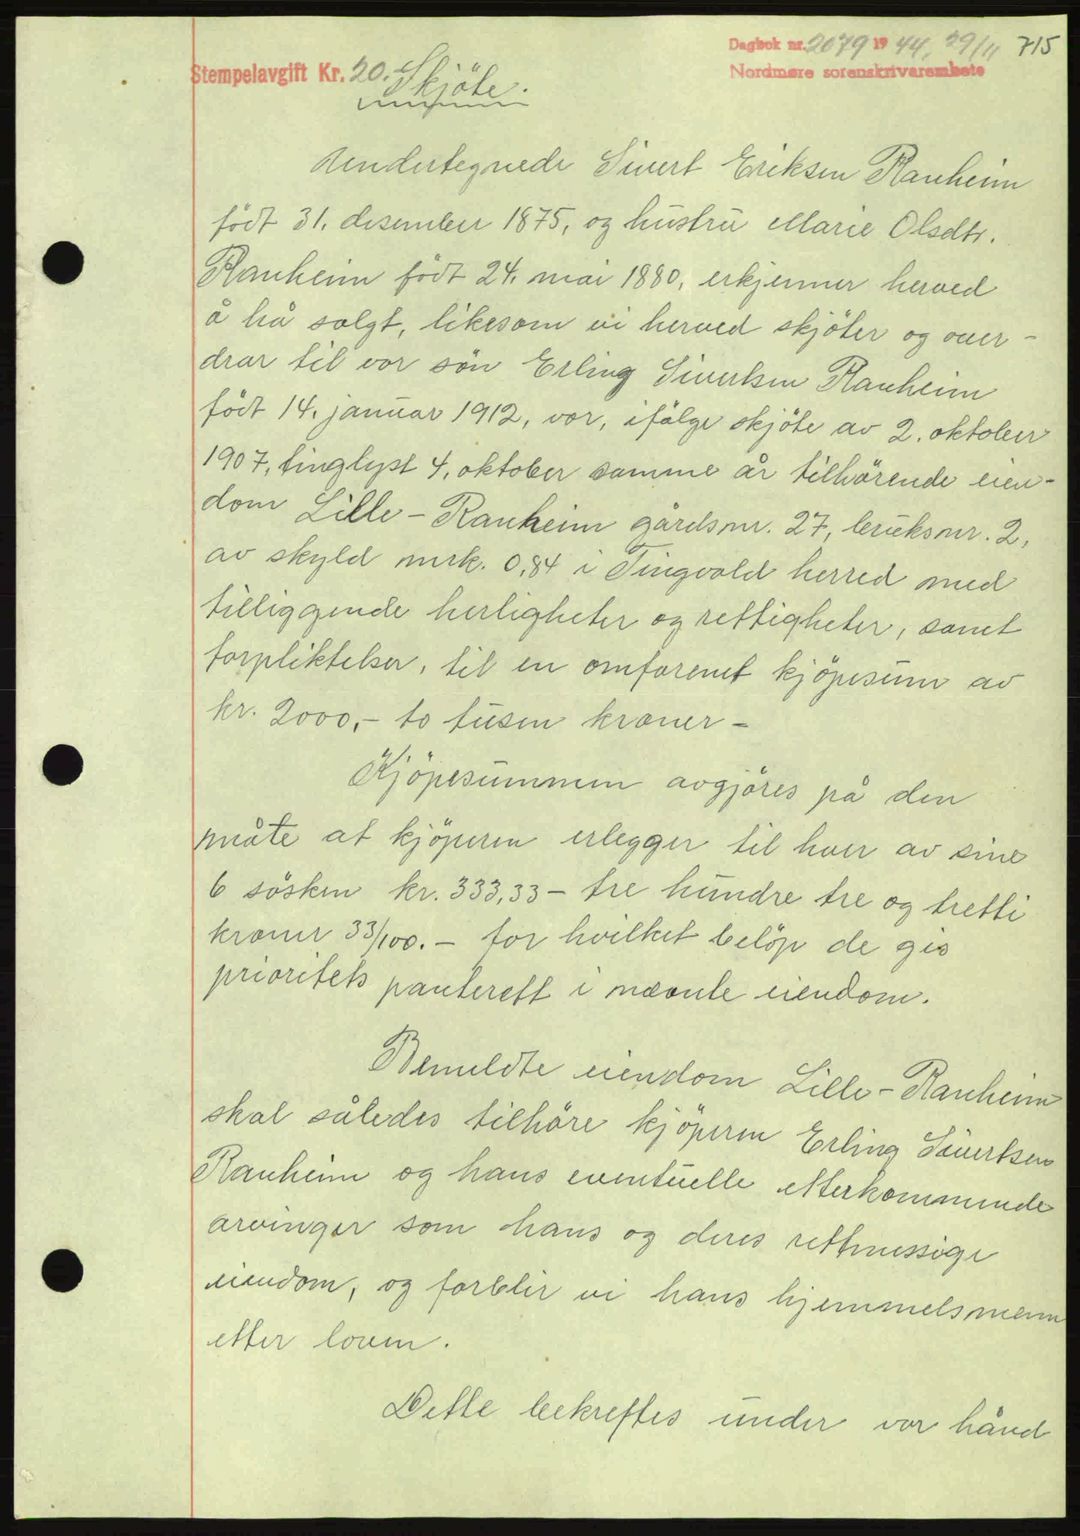 Dagbok nr. 2079 19 44, 29/11 715
Stempelavgift Kr. 20.
Nordmøre sorenskrivarembete
Skjöte.
Undertegnede Sivert Eriksen Ranheim
födt 31. desember 1875, og hustru Marie Olsdtr.
Ranheim födt 24. mai 1880, erkjenner herved
å ha solgt, likesom vi herved skjöter og over-
drar til vor sön Erling Sivertsen Ranheim
födt 14. januar 1912, vor, ifölge skjöte av 2. oktober
1907, tinglyst 4. oktober samme år tilhörende eien-
dom Lille-Ranheim gårdsnr. 27, bruksnr. 2,
av skyld mrk. 0,84 i Tingvold herred med
tilliggende herligheter og rettigheter, samt
forpliktelser, til en omforenet kjöpesum av
kr. 2000,- to tusen kroner-
Kjöpesummen avgjöres på den
måte at kjöperen erlegger til hver av sine
6 sösken kr. 333,33 - tre hundre tre og tretti
kroner 33/100. - for hvilket belöp de gis
prioritets panterett i nævnte eiendom.
Bemeldte eiendom Lille-Ranheim
skal således tilhöre kjöperen Erling Sivertsen
Ranheim og hans eventuelle etterkommende
arvinger som hans og deres rettmessige
eiendom, og forblir vi hans hjemmelsmenn
etter loven.
Dette bekreftes under vor hånd